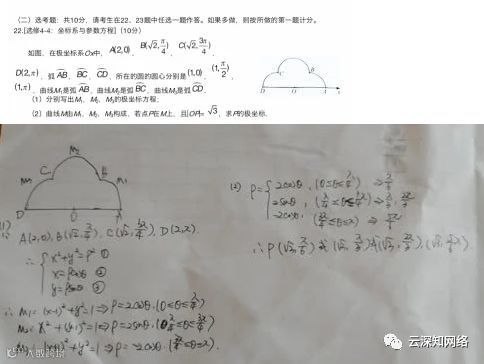 （二）选考题：共10分，请考生在22、23题中任选一题作答。如果多做，则按所做的第一题计分。
22.[选修4-4：坐标系与参数方程]（10分）
如图，在极坐标系Ox中，A(2,0)，B(√2,π/4)，C(√2,3π/4)，
D(2,π)，弧AB，BC，CD，所在的圆的圆心分别是(1,0)，(1,π/2)，
(1,π)，曲线M₁是弧AB，曲线M₂是弧BC，曲线M₃是弧CD。
（1）分别写出M₁，M₂，M₃的极坐标方程；
（2）曲线M由M₁，M₂，M₃构成，若点P在M上，且|OP|=√3，求P的极坐标.
C B
D O A x
M₂
M₃ C B M₁
D O A
(1)
∵ A(2,0), B(√2,π/4), C(√2,3π/4), D(2,π).
∴ { x²+y²=ρ² ①
x=ρcosθ ②
y=ρsinθ ③
∴ M₁=(x-1)²+y²=1⇒ρ=2cosθ.(0≤θ≤π/4)
M₂=x²+(y-1)²=1⇒ρ=2sinθ(π/4≤θ≤3π/4)
M₃=(x+1)²+y²=1⇒ρ=-2cosθ.(3π/4≤θ≤π).
(2) ρ={ 2cosθ,(0≤θ≤π/4) ⇒π/6
2sinθ,(π/4≤θ≤3π/4)⇒π/3,2π/3
-2cosθ(3π/4≤θ≤π)⇒5π/6
∴P(√3,π/6)或(√3,π/3)或(√3,2π/3),(√3,5π/6).
云深知网络